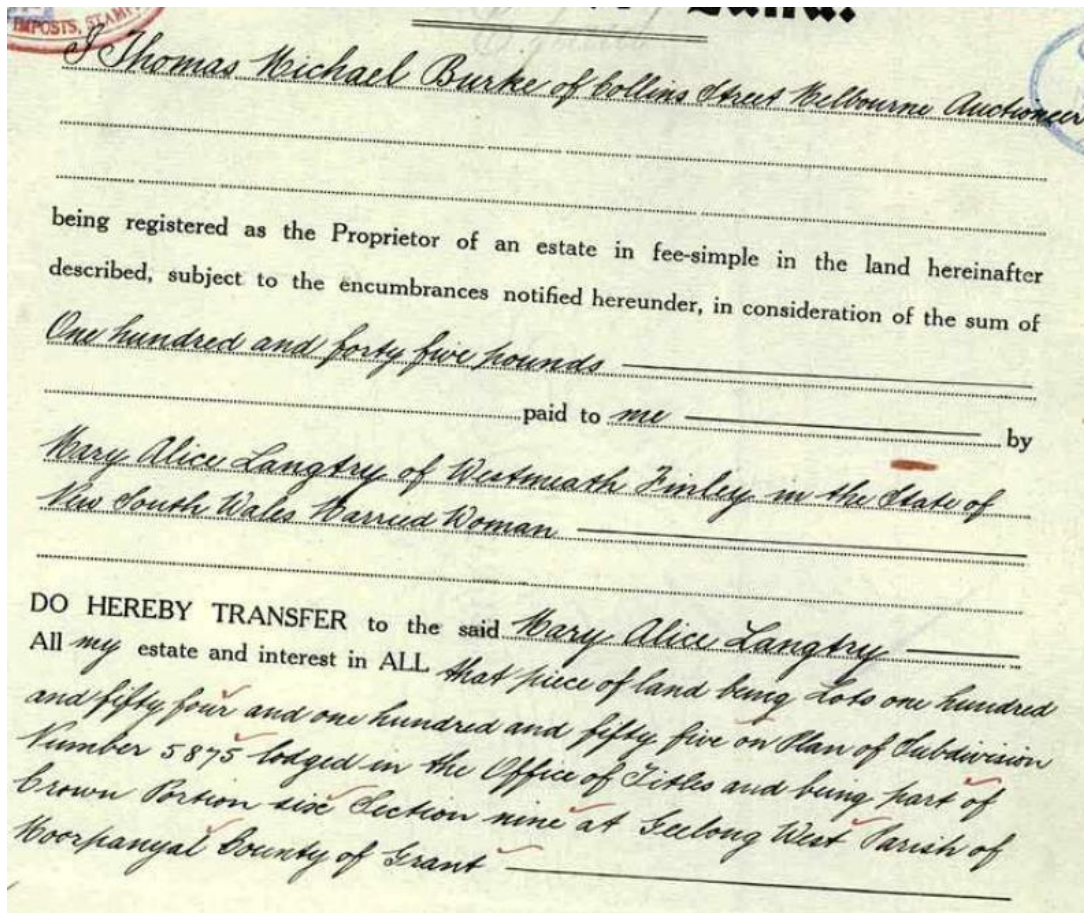 IMPOSTS, STAMP
I Thomas Michael Burke of Collins Street Melbourne Auctioneer
being registered as the Proprietor of an estate in fee-simple in the land hereinafter
described, subject to the encumbrances notified hereunder, in consideration of the sum of
One hundred and forty five pounds
paid to me by
Mary Alice Langtry of Westmeath Finley in the State of
New South Wales Married Woman
DO HEREBY TRANSFER to the said Mary Alice Langtry
All my estate and interest in ALL that piece of land being Lots one hundred
and fifty four and one hundred and fifty five on Plan of Subdivision
Number 5875 lodged in the Office of Titles and being part of
Crown Portion six Section nine at Geelong West Parish of
Moorpanyal County of Grant